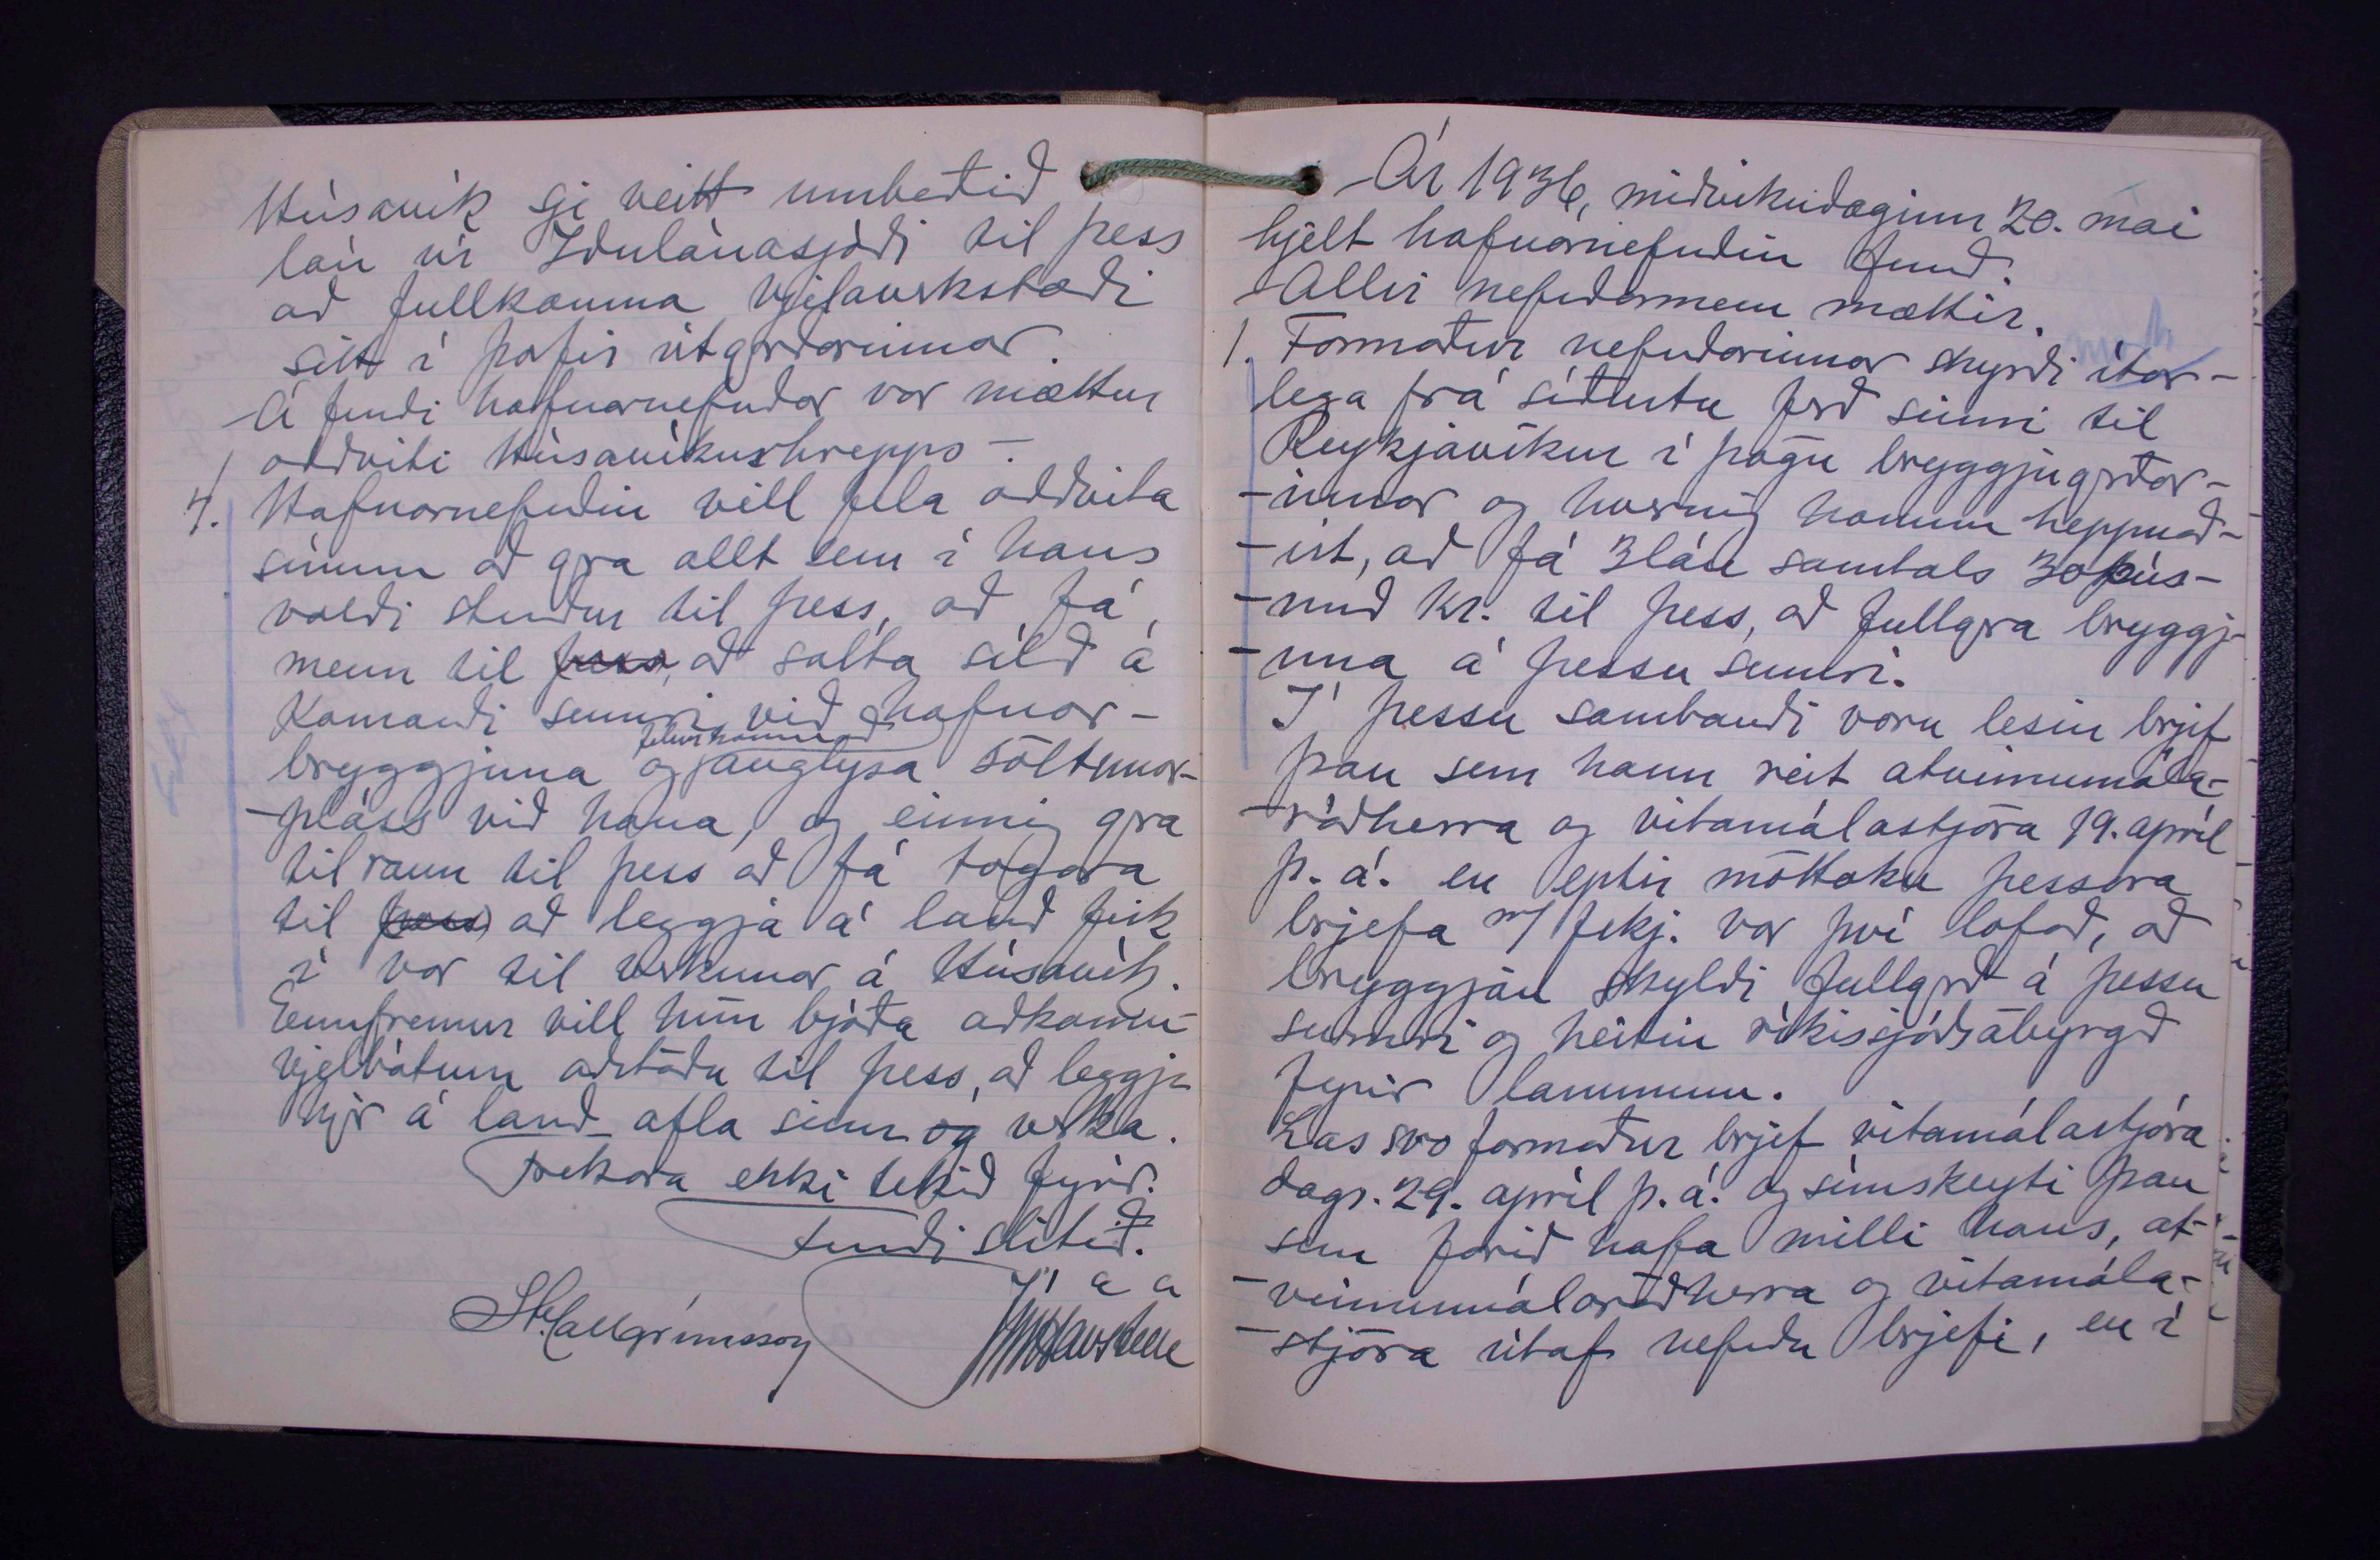 Húsavík sje veitt umbeðið
lán úr Iðnlánasjóði til þess
að fullkomna vjelaverkstæði
sitt í þarfir útgerðarinnar.
Á fundi hafnarnefndar var mættur
oddviti Húsavíkurhrepps –
4. Hafnarnefndin vill fela oddvita
sínum að gera allt sem í hans
valdi stendur til þess, að fá
menn til þess, að salta síld á
komandi sumri við hafnar-
bryggjuna og auglýsa söltunar-
-pláss við hana, og einnig gera
tilraun til þess að fá togara
til þess að leggja á land fisk
í vor til verkunar á Húsavík.
Ennfremur vill hún bjóða aðkomu-
vjelbátum aðstöðu til þess, að leggja
hjer á land afla sinn og verka.
Frekara ekki tekið fyrir.
Fundi slitið.
St. Hallgrímsson
Ár 1936, miðvikudaginn 20. maí
hjelt hafnarnefndin fund.
Allir nefndarmenn mættir.
1. Formaður nefndarinnar skyrði ítar-
lega frá síðustu ferð sinni til
Reykjavíkur í þágu bryggjugerðar-
-innar og hvernig honum heppnað-
-ist, að fá 3 lán samtals 30 þús-
-und kr. til þess, að fullgera bryggj-
-una á þessu sumri.
Í þessu sambandi voru lesin brjef
þau sem hann reit atvinnumála-
-ráðherra og vitamálastjóra 19. apríl
þ. á. en eptir móttöku þessara
brjefa m/ fskj. var því lofað, að
bryggjan skyldi fullgerð á þessu
sumri og heitin ríkissjóðsábyrgð
fyrir lánunum.
Las svo formaður brjef vitamálastjóra
dags. 29. apríl þ. á. og símskeyti þau
sem farið hafa milli hans, at-
-vinnumálaráðherra og vitamála-
-stjóra útaf nefndu brjefi, en í